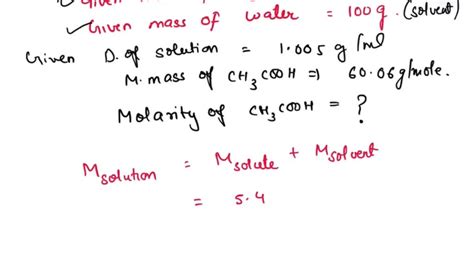 Given mass of water = 100 g. (solvent)
Given D. of solution = 1.005 g/ml
M. mass of CH₃COOH = 60.06 g/mole.
Molarity of CH₃COOH = ?
M solution = M solute + M solvent
= 5.4